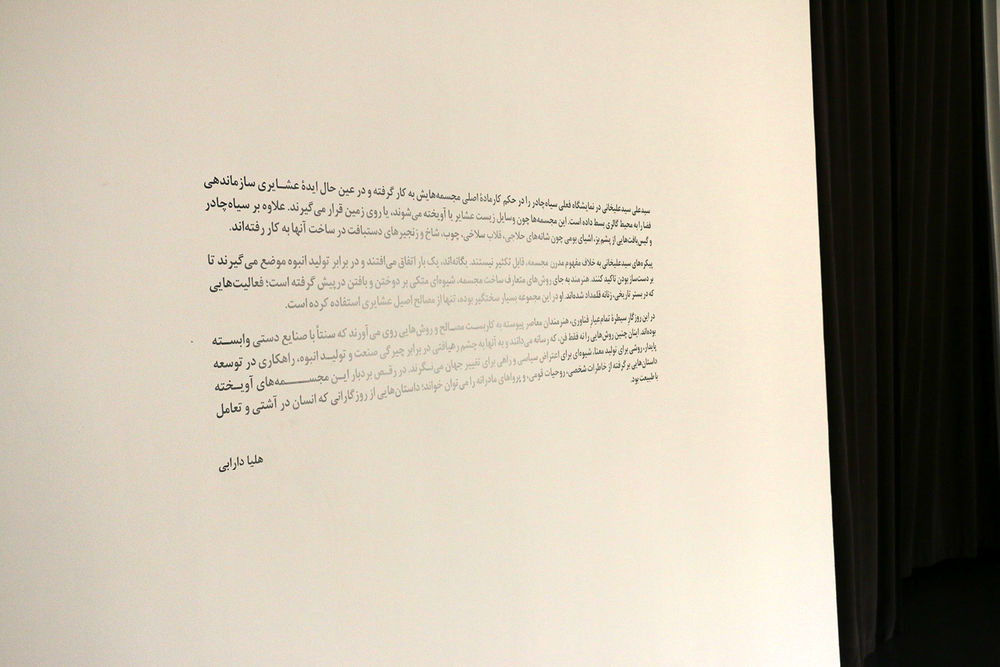 سیدعلی سیدعلیخانی در نمایشگاه فعلی سیاه‌چادر را در حکم کارمادهٔ اصلی مجسمه‌هایش به کار گرفته و در عین حال ایدهٔ عشـایری سازماندهی
فضا را به محیط گالری بسط داده است. این مجسمه‌ها چون وسایل زیست عشایر یا آویخته می‌شوند، یا روی زمین قرار می‌گیرند. علاوه بر سیاه‌چادر
و گیس‌بافت‌هایی از پشم بز، اشیای بومی چون شانه‌های حلاجی، قلاب سلاخی، چوب، شاخ و زنجیرهای دستبافت در ساخت آنها به کار رفته‌اند.
پیکره‌های سیدعلیخانی به خلاف مفهوم مدرن مجسمه، قابل تکثیر نیستند. یگانه‌اند، یک بار اتفاق می‌افتند و در برابر تولید انبوه موضع می‌گیرند تا
بر دست‌ساز بودن تاکید کنند. هنرمند به جای روش‌های متعارف ساخت مجسمه، شیوه‌ای متکی بر دوختن و بافتن در پیش گرفته است؛ فعالیت‌هایی
که در بستر تاریخی، زنانه قلمداد شده‌اند. او در این مجموعه بسیار سختگیر بوده، تنها از مصالح اصیل عشایری استفاده کرده است.
در این روزگار سیطرهٔ تمام‌عیار فناوری، هنرمندان معاصر پیوسته به کاربست مصالح و روش‌هایی روی می‌آورند که سنتاً با صنایع دستی وابسـته
بوده‌اند. اینان چنین روش‌هایی را نه فقط فن، که رسانه می‌دانند و به آنها به چشم رهیافتی در برابر چیرگی صنعت و تولیـد انبوه، راهکاری در توسعه
پایدار، روشی برای تولید معنا، شیوه‌ای برای اعتراض سیاسی و راهی برای تغییر جهان می‌نگرند. در رقـص بردبار ایـن مجسـمه‌های آویـخته
داستان‌هایی برگرفته از خاطرات شخصی، روحیات قومی، و پرواهای مادرانه را می‌توان خواند؛ داستان‌هایی از روزگارانی که انسان در آشتی و تعامل
با طبیعت بود.
هلیا دارابی